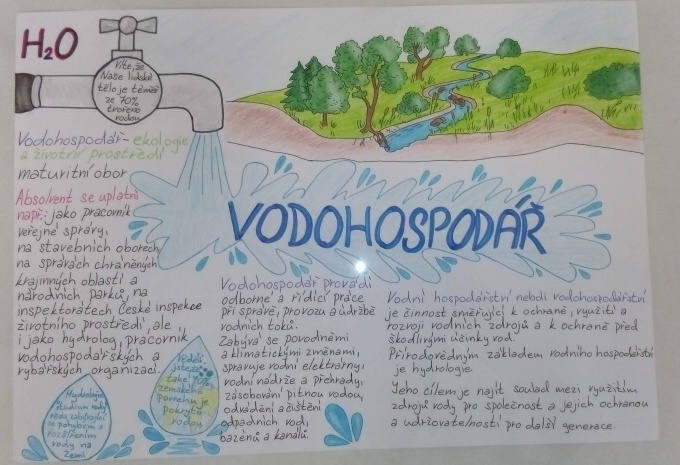 H₂O
Víte, že
Naše lidské
tělo je téměř
ze 70%
tvořeno
vodou
Vodohospodář - ekologie
a životní prostředí
maturitní obor
Absolvent se uplatní
např.: jako pracovník
veřejné správy,
na stavebních oborech,
na správách chráněných
krajinných oblastí a
národních parků, na
inspektorátech České inspekce
životního prostředí, ale
i jako hydrolog, pracovník
vodohospodářských a
rybářských organizací.
Hydrologie
studium vody
věda zabývající
se pohybem a
rozšířením
vody na
Zemi
Věděli
jste, že
také 70%
zemského
povrchu je
pokryto
vodou
VODOHOSPODÁŘ
Vodohospodář provádí
odborné a řídící práce
při správě, provozu a údržbě
vodních toků.
Zabývá se povodněmi
a klimatickými změnami,
spravuje vodní elektrárny,
vodní nádrže a přehrady,
zásobování pitnou vodou,
odvádění a čištění
odpadních vod,
bazénů a kanálů.
Vodní hospodářství neboli vodohospodářství
je činnost směřující k ochraně, využití a
rozvoji vodních zdrojů a k ochraně před
škodlivými účinky vod.
Přírodovědným základem vodního hospodářství
je hydrologie.
Jeho cílem je najít soulad mezi využitím
zdrojů vody pro společnost a jejich ochranou
a udržovatelností pro další generace.